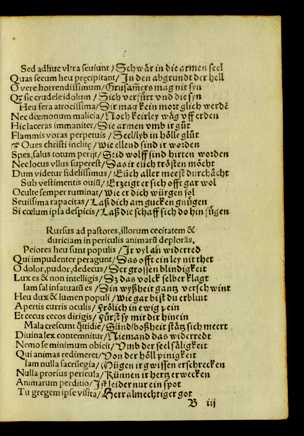 Sed adhuc vltra seuiunt / Schwär in die armen seel
Quas secum heu precipitant / In den abgrundt der hell
O vere horrendissimum / Grusamers mag nit syn
Qr sic crudele idolum / Sich versürt vnd die syn
Heu fera atrocissima / Dir mag kein mottglich werdē
Nec dœmonum malicia / Noch keirley wäg vff erden
Hic laceras immaniter / Die armen vmb ir gůt
Flammis voras perpetuis / Seel lyb in hölle glůt
Oues christi inclite / Wie ellend sind ir worden
Spes, salus totum perijt / Seid wolff sind hirten worden
Nec locus vllus superest / Das ir euch trösten möcht
Dum videtur fidelissimus / Eüch aller meest durchächt
Sub vestimentis ouiū / Erzeigt er sich offt gar wol
Occulte semper ruminat / Wie er dich würgen sol
Seuissima rapacitas / Laß dich am gucken gnügen
Si cœlum ipsa despicis / Laß die schaff sich do hin fügen
Rursus ad pastores, illorum cecitatem &
duriciam in periculis animarū deplorās,
Peiores heu sunt populis / Ir vyl an widerred
Qui impudenter peragunt / Das offt ein ley nit thet
O dolor, pudor, dedecus / Der grossen blindigkeit
Lux es & non intelligis / Dz das volck selber klagt
Iam sal infatuatū es / Din wyßheit gantz verschwint
Heu dux & lumen populi / Wie gar bist du erblint
Apertis curris oculis / Frölich in ewig pein
Et cecus cecos dirigis / Fürst sy mit dir hinein
Mala crescunt qtidie / Sünd boßheit stätz sich meert
Diuina lex contemnitur / Niemand das widerredt
Nemo se minimum obicit / Vmb der seel säligkeit
Qui animas redimeret / Von der höll pinigkeit
Iam nulla sacrilegia / Mügen ir gwissen erschrecken
Nulla prorsus pericula / Künnen ir hertz erwecken
Animarum perditio / Ist leider nur ein spot
Tu gregem ipse visita / Herr almechtiger got
B iij